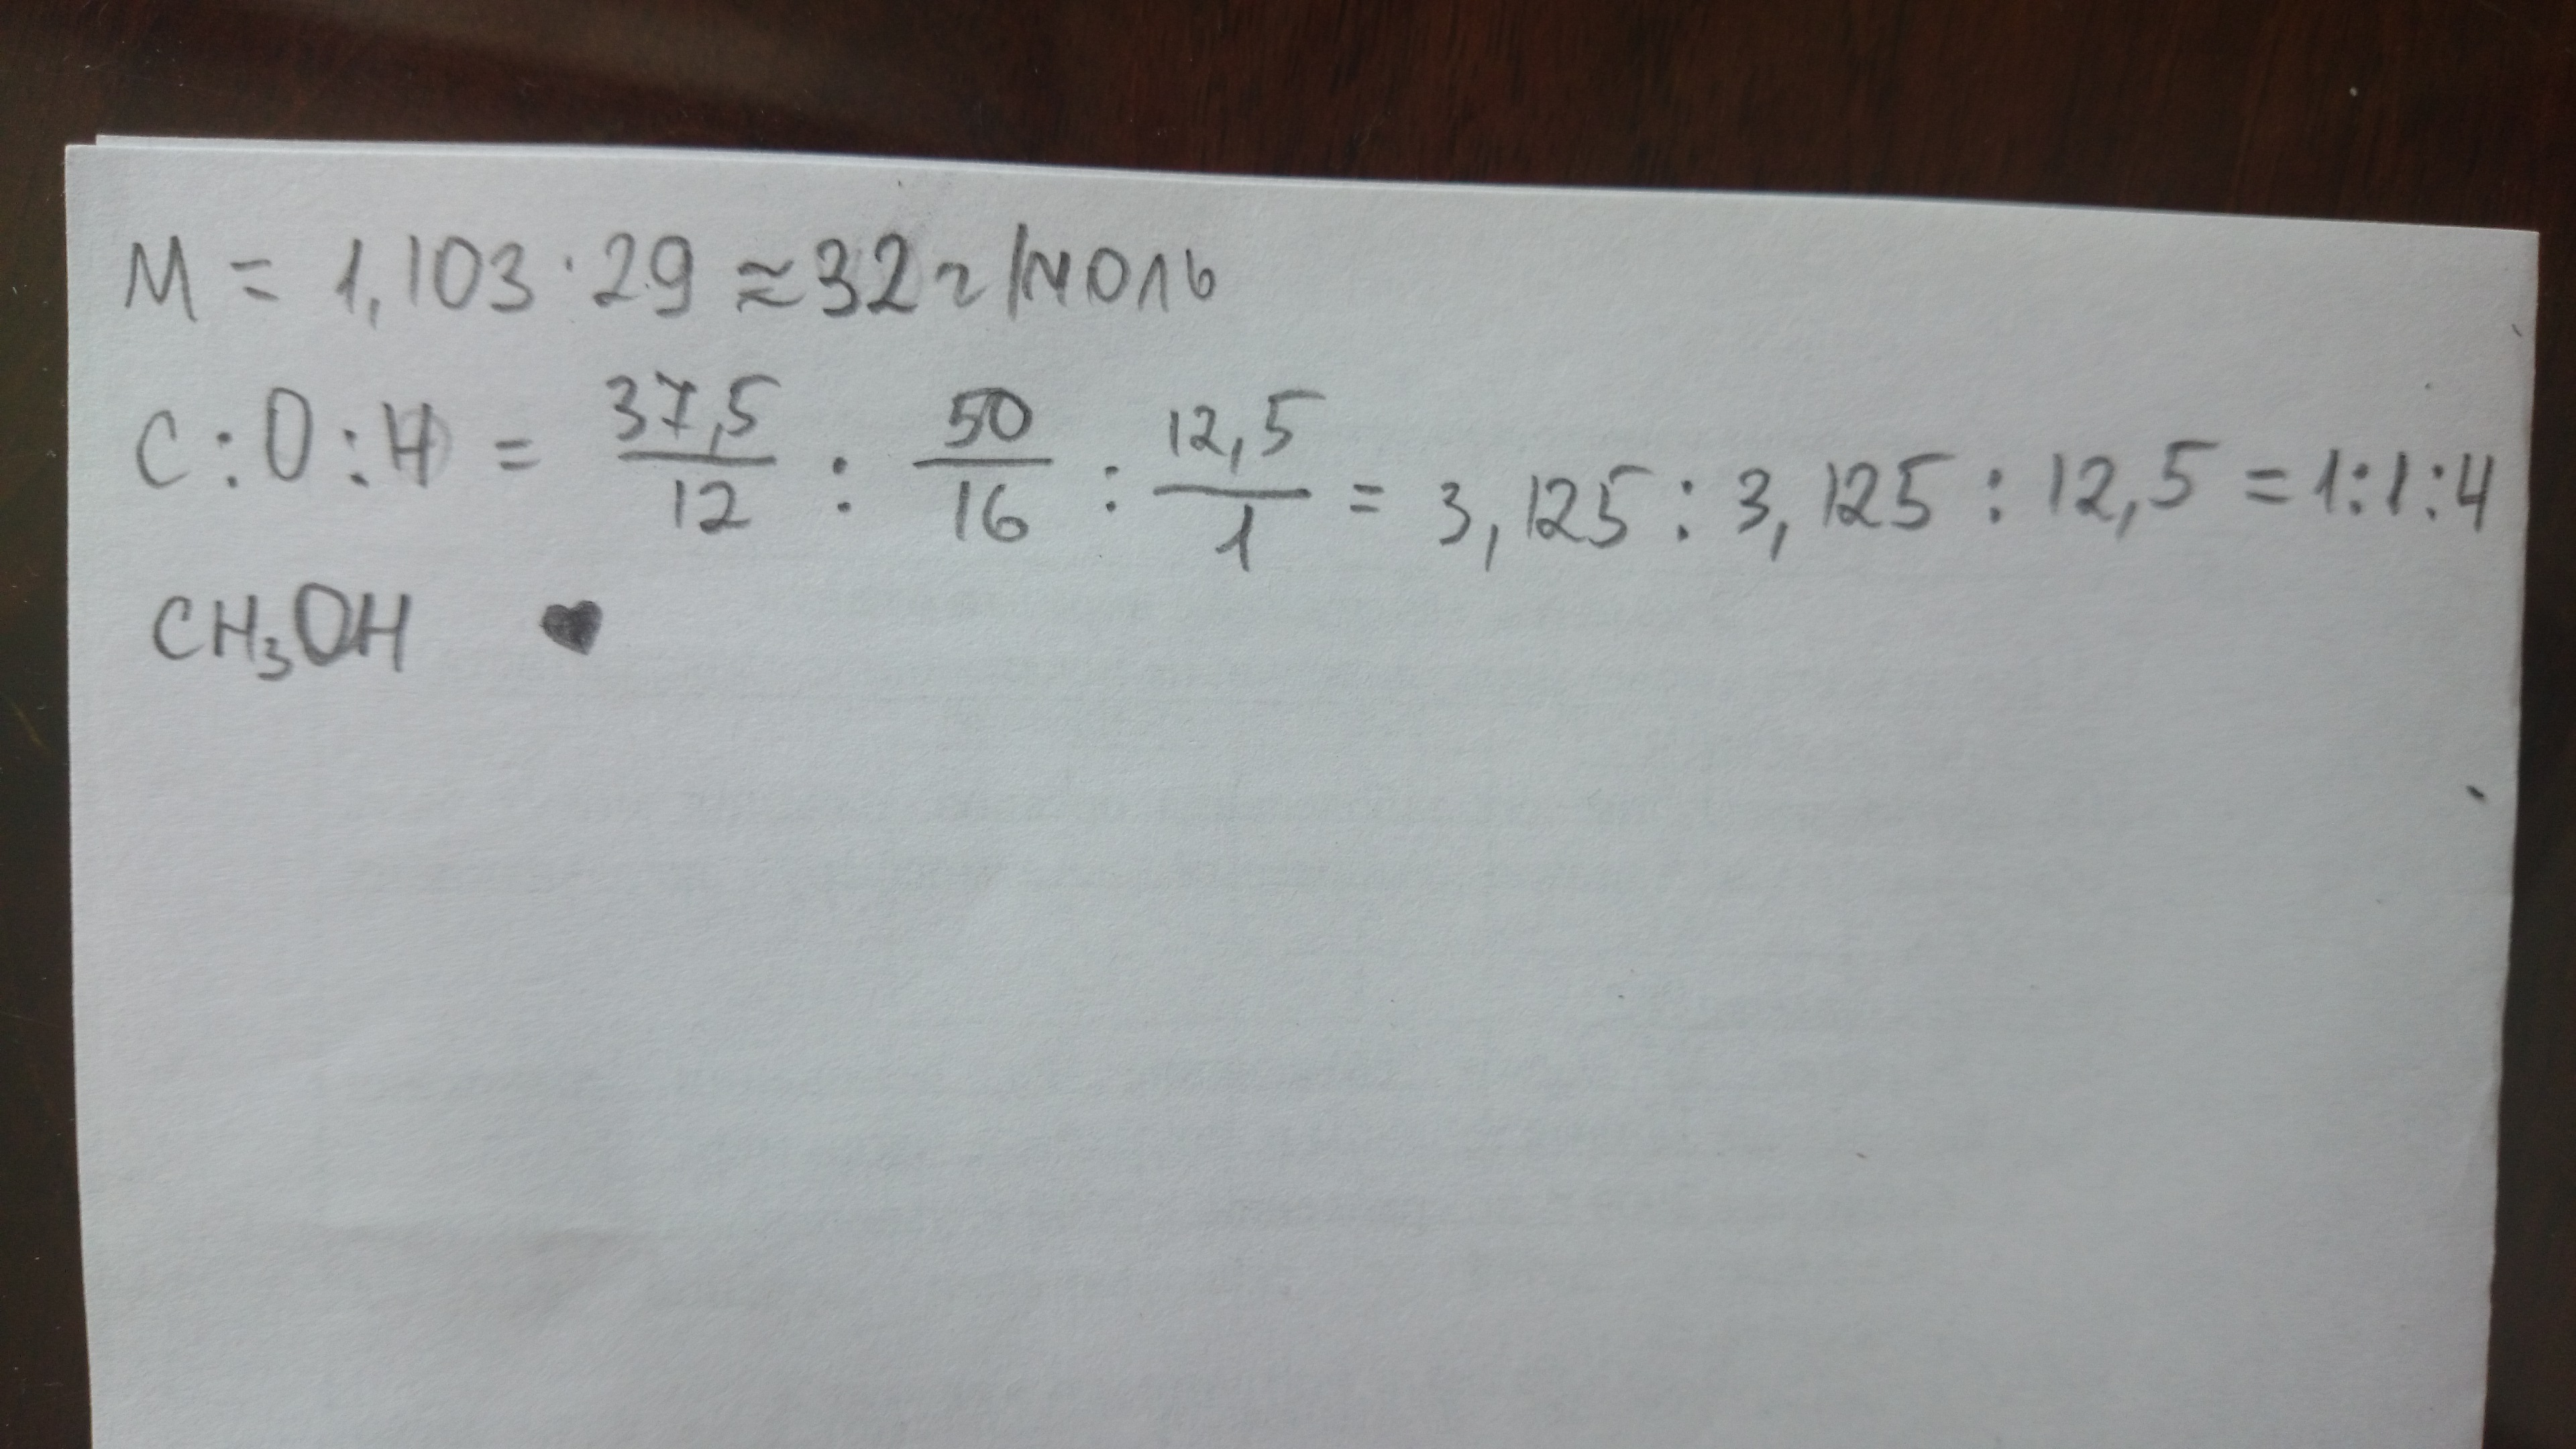 M = 1,103 · 29 ≈ 32 г/моль
C : O : H = 37,5/12 : 50/16 : 12,5/1 = 3,125 : 3,125 : 12,5 = 1:1:4
CH₃OH ♥